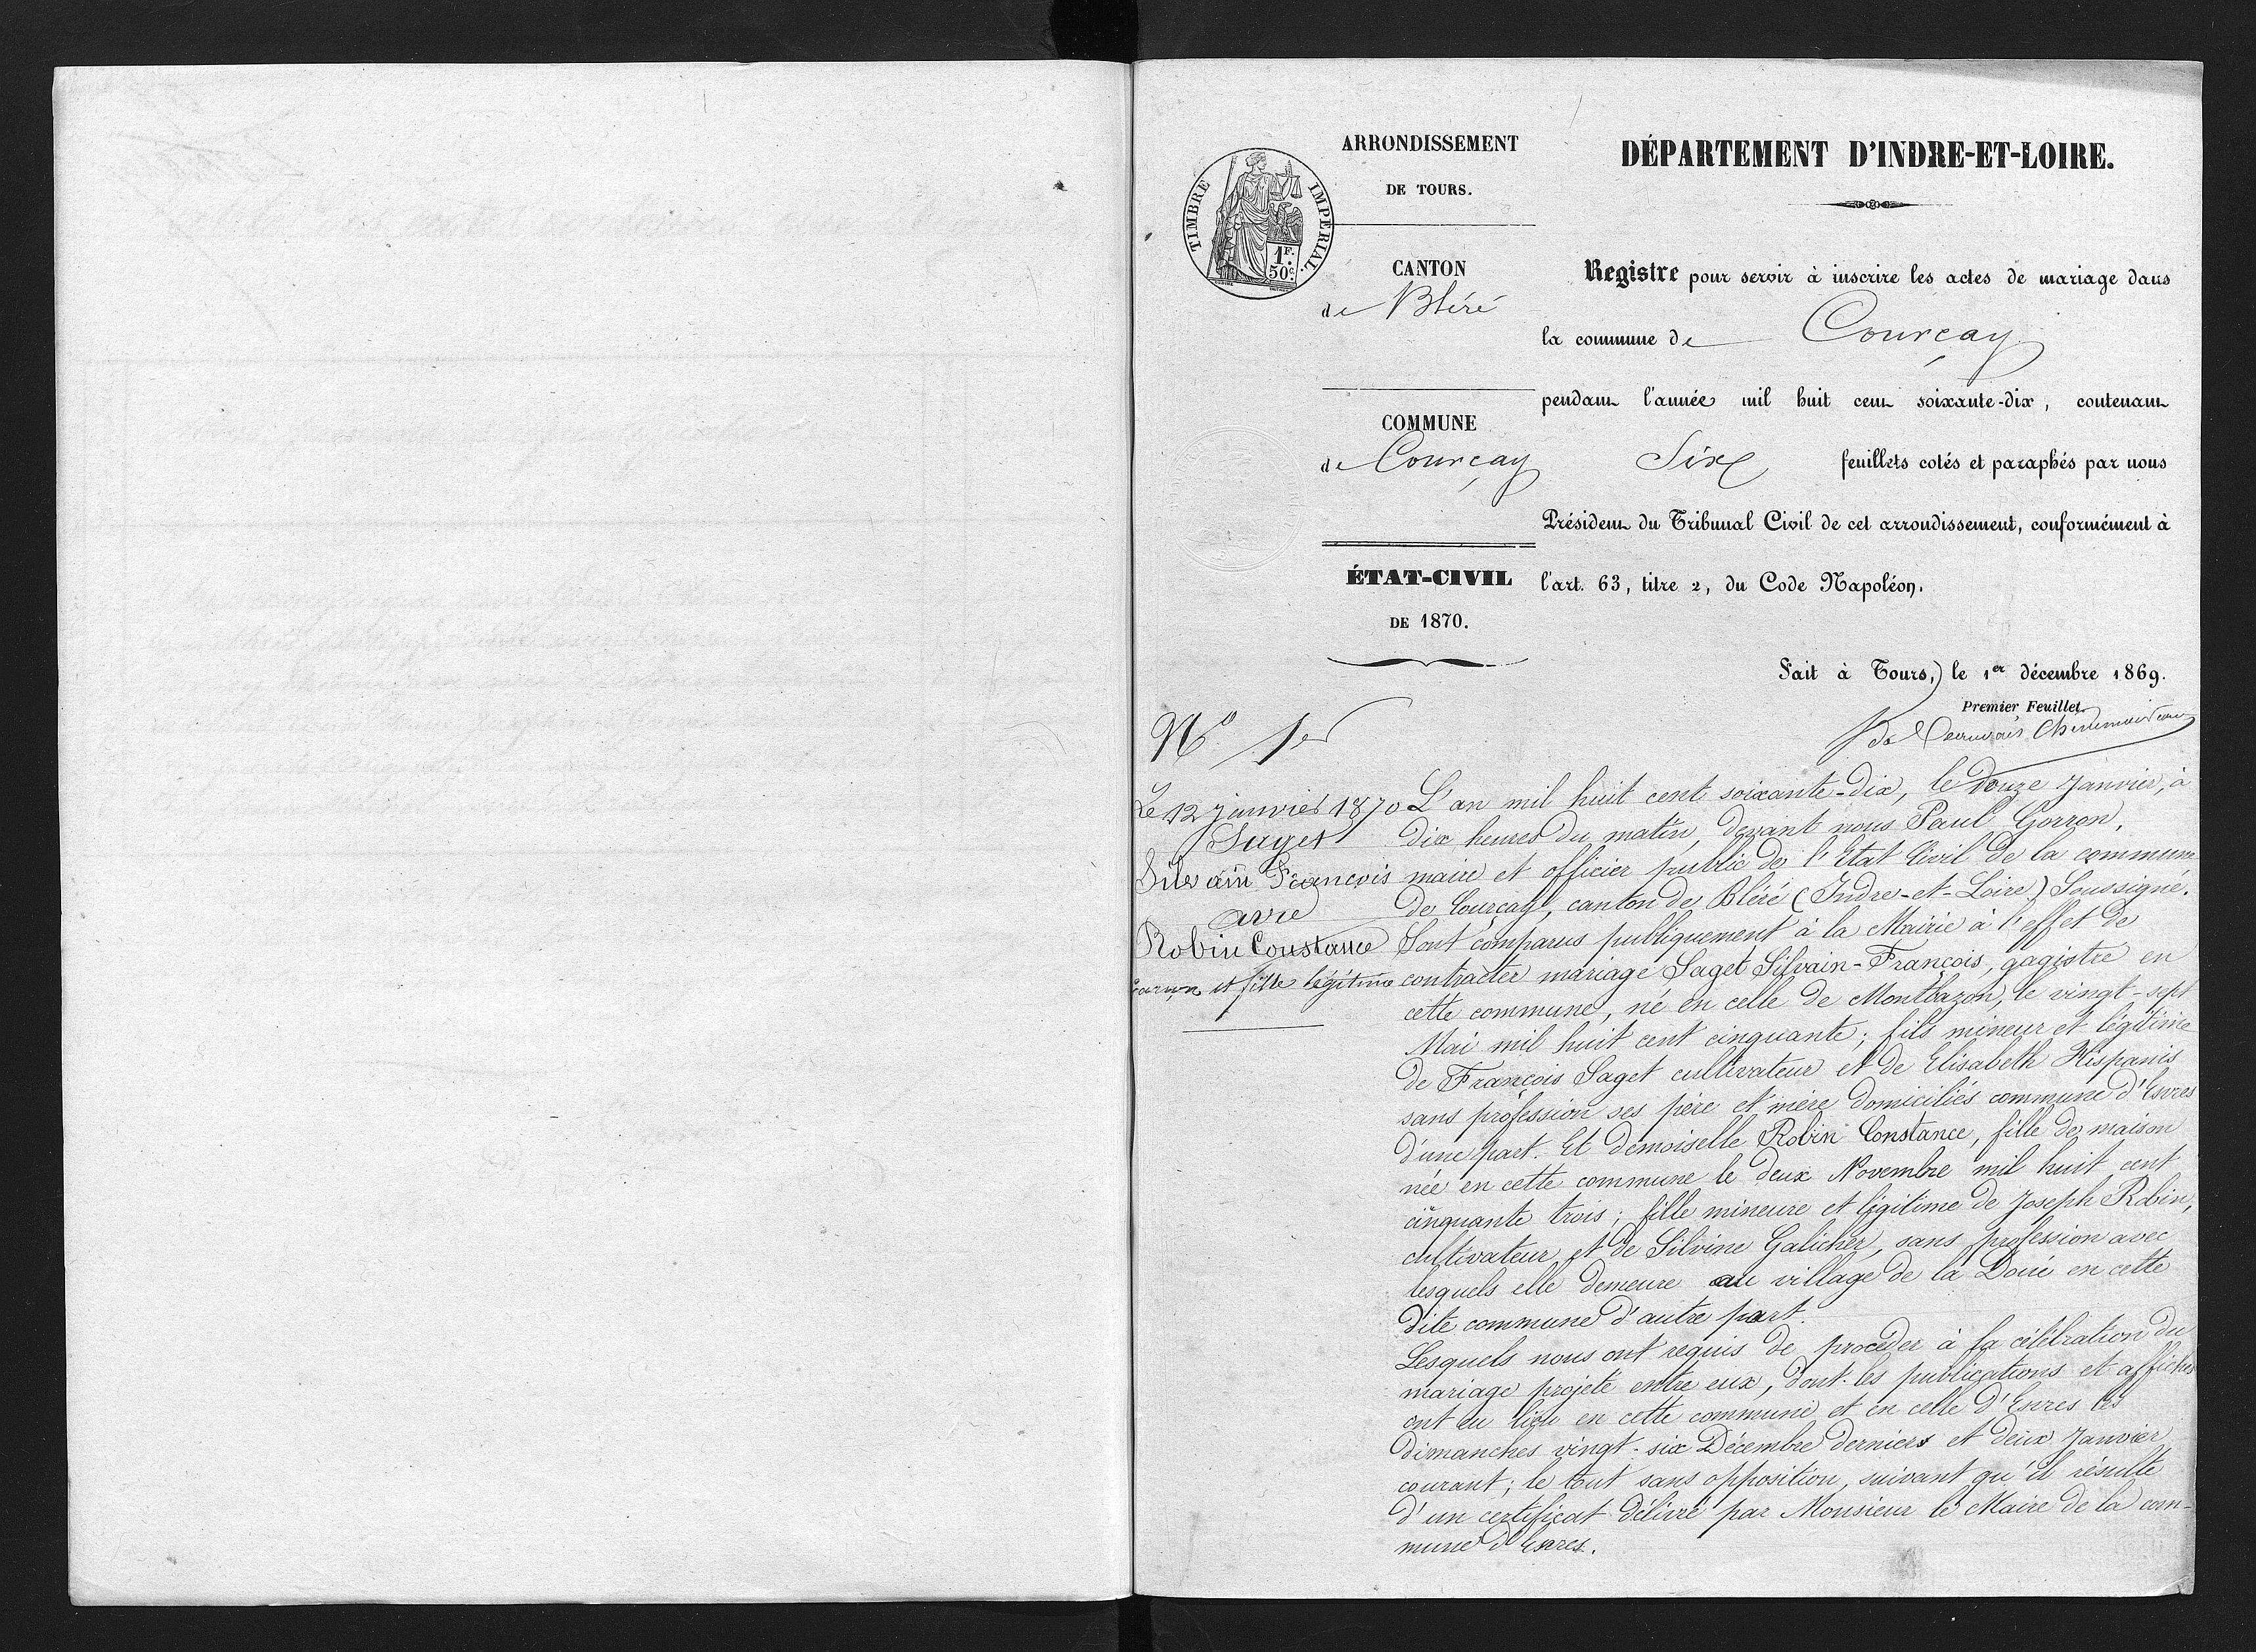 ARRONDISSEMENT
DE TOURS.
TIMBRE IMPÉRIAL.
1F.
50c.
CANTON
de Bléré
COMMUNE
de Courçay
ÉTAT-CIVIL
DE 1870.
DÉPARTEMENT D'INDRE-ET-LOIRE.
Registre pour servir à inscrire les actes de mariage dans
la commune de Courçay
pendant l'année mil huit cent soixante-dix, contenant
Six feuillets cotés et paraphés par nous
Président du Tribunal Civil de cet arrondissement, conformément à
l'art. 63, titre 2, du Code Napoléon.
Fait à Tours, le 1er décembre 1869.
Premier Feuillet.
No 1er
Le 12 janvier 1870
Saget
Silvain François
avec
Robin Constance
garçon et fille légitime
L'an mil huit cent soixante-dix, le douze Janvier, à
dix heures du matin, devant nous Paul Gorron,
maire et officier public de l'Etat Civil de la commune
de Courçay, canton de Bléré (Indre-et-Loire) Soussigné.
Sont comparus publiquement à la Mairie à l'effet de
contracter mariage Saget Silvain-François, gagiste en
cette commune, né en celle de Montbazon, le vingt-sept
Mai mil huit cent cinquante; fils mineur et légitime
de François Saget cultivateur et de Elisabeth Hispanis
sans profession ses père et mère domiciliés commune d'Esvres
d'une part. Et demoiselle Robin Constance, fille de maison
née en cette commune le deux Novembre mil huit cent
cinquante trois; fille mineure et légitime de Joseph Robin,
cultivateur et de Silvine Galicher, sans profession avec
lesquels elle demeure au village de la Doué en cette
dite commune d'autre part.
Lesquels nous ont requis de procéder à la célébration du
mariage projeté entre eux, dont les publications et affiches
ont eu lieu en cette commune et en celle d'Esvres les
dimanches vingt-six Décembre derniers et deux Janvier
courant; le tout sans opposition, suivant qu'il résulte
d'un certificat délivré par Monsieur le Maire de la com-
mune d'Esvres.